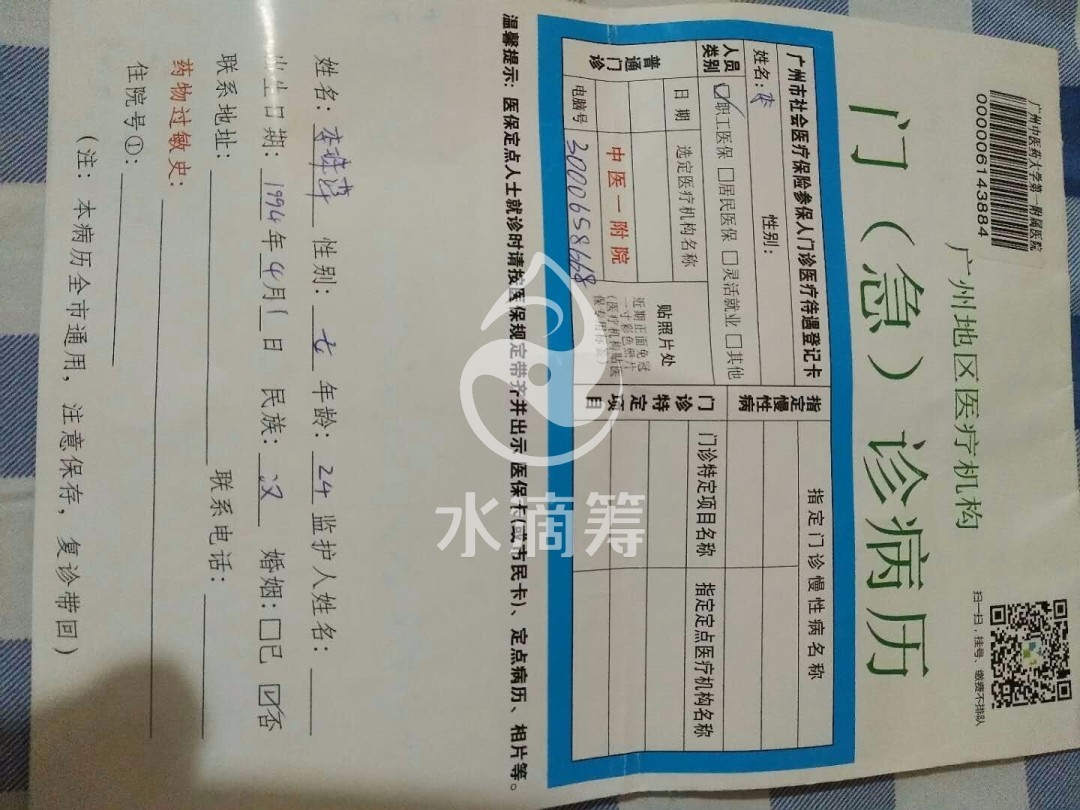 广州中医药大学第一附属医院
000006143884
广州地区医疗机构
扫一扫，挂号、缴费不排队
门（急）诊病历
广州市社会医疗保险参保人门诊医疗待遇登记卡
姓名：李 性别：
人员类别 ☑职工医保 □居民医保 □灵活就业 □其他
普通门诊
日期 选定医疗机构名称
中医一附院
电脑号 3000658668
贴照片处
近期正面免冠
一寸彩色照片
（医疗机构粘贴医
保专用标签）
指定慢性病
指定门诊慢性病名称
门诊特定项目
门诊特定项目名称 指定定点医疗机构名称
温馨提示：医保定点人士就诊时请按医保规定带齐并出示 医保卡(或市民卡)、定点病历、相片等。
姓名：李 性别：女 年龄：24 监护人姓名：
出生日期：1994年4月1日 民族：汉 婚姻：□已 ☑否
联系地址： 联系电话：
药物过敏史：
住院号①：
（注：本病历全市通用，注意保存，复诊带回）
水滴筹